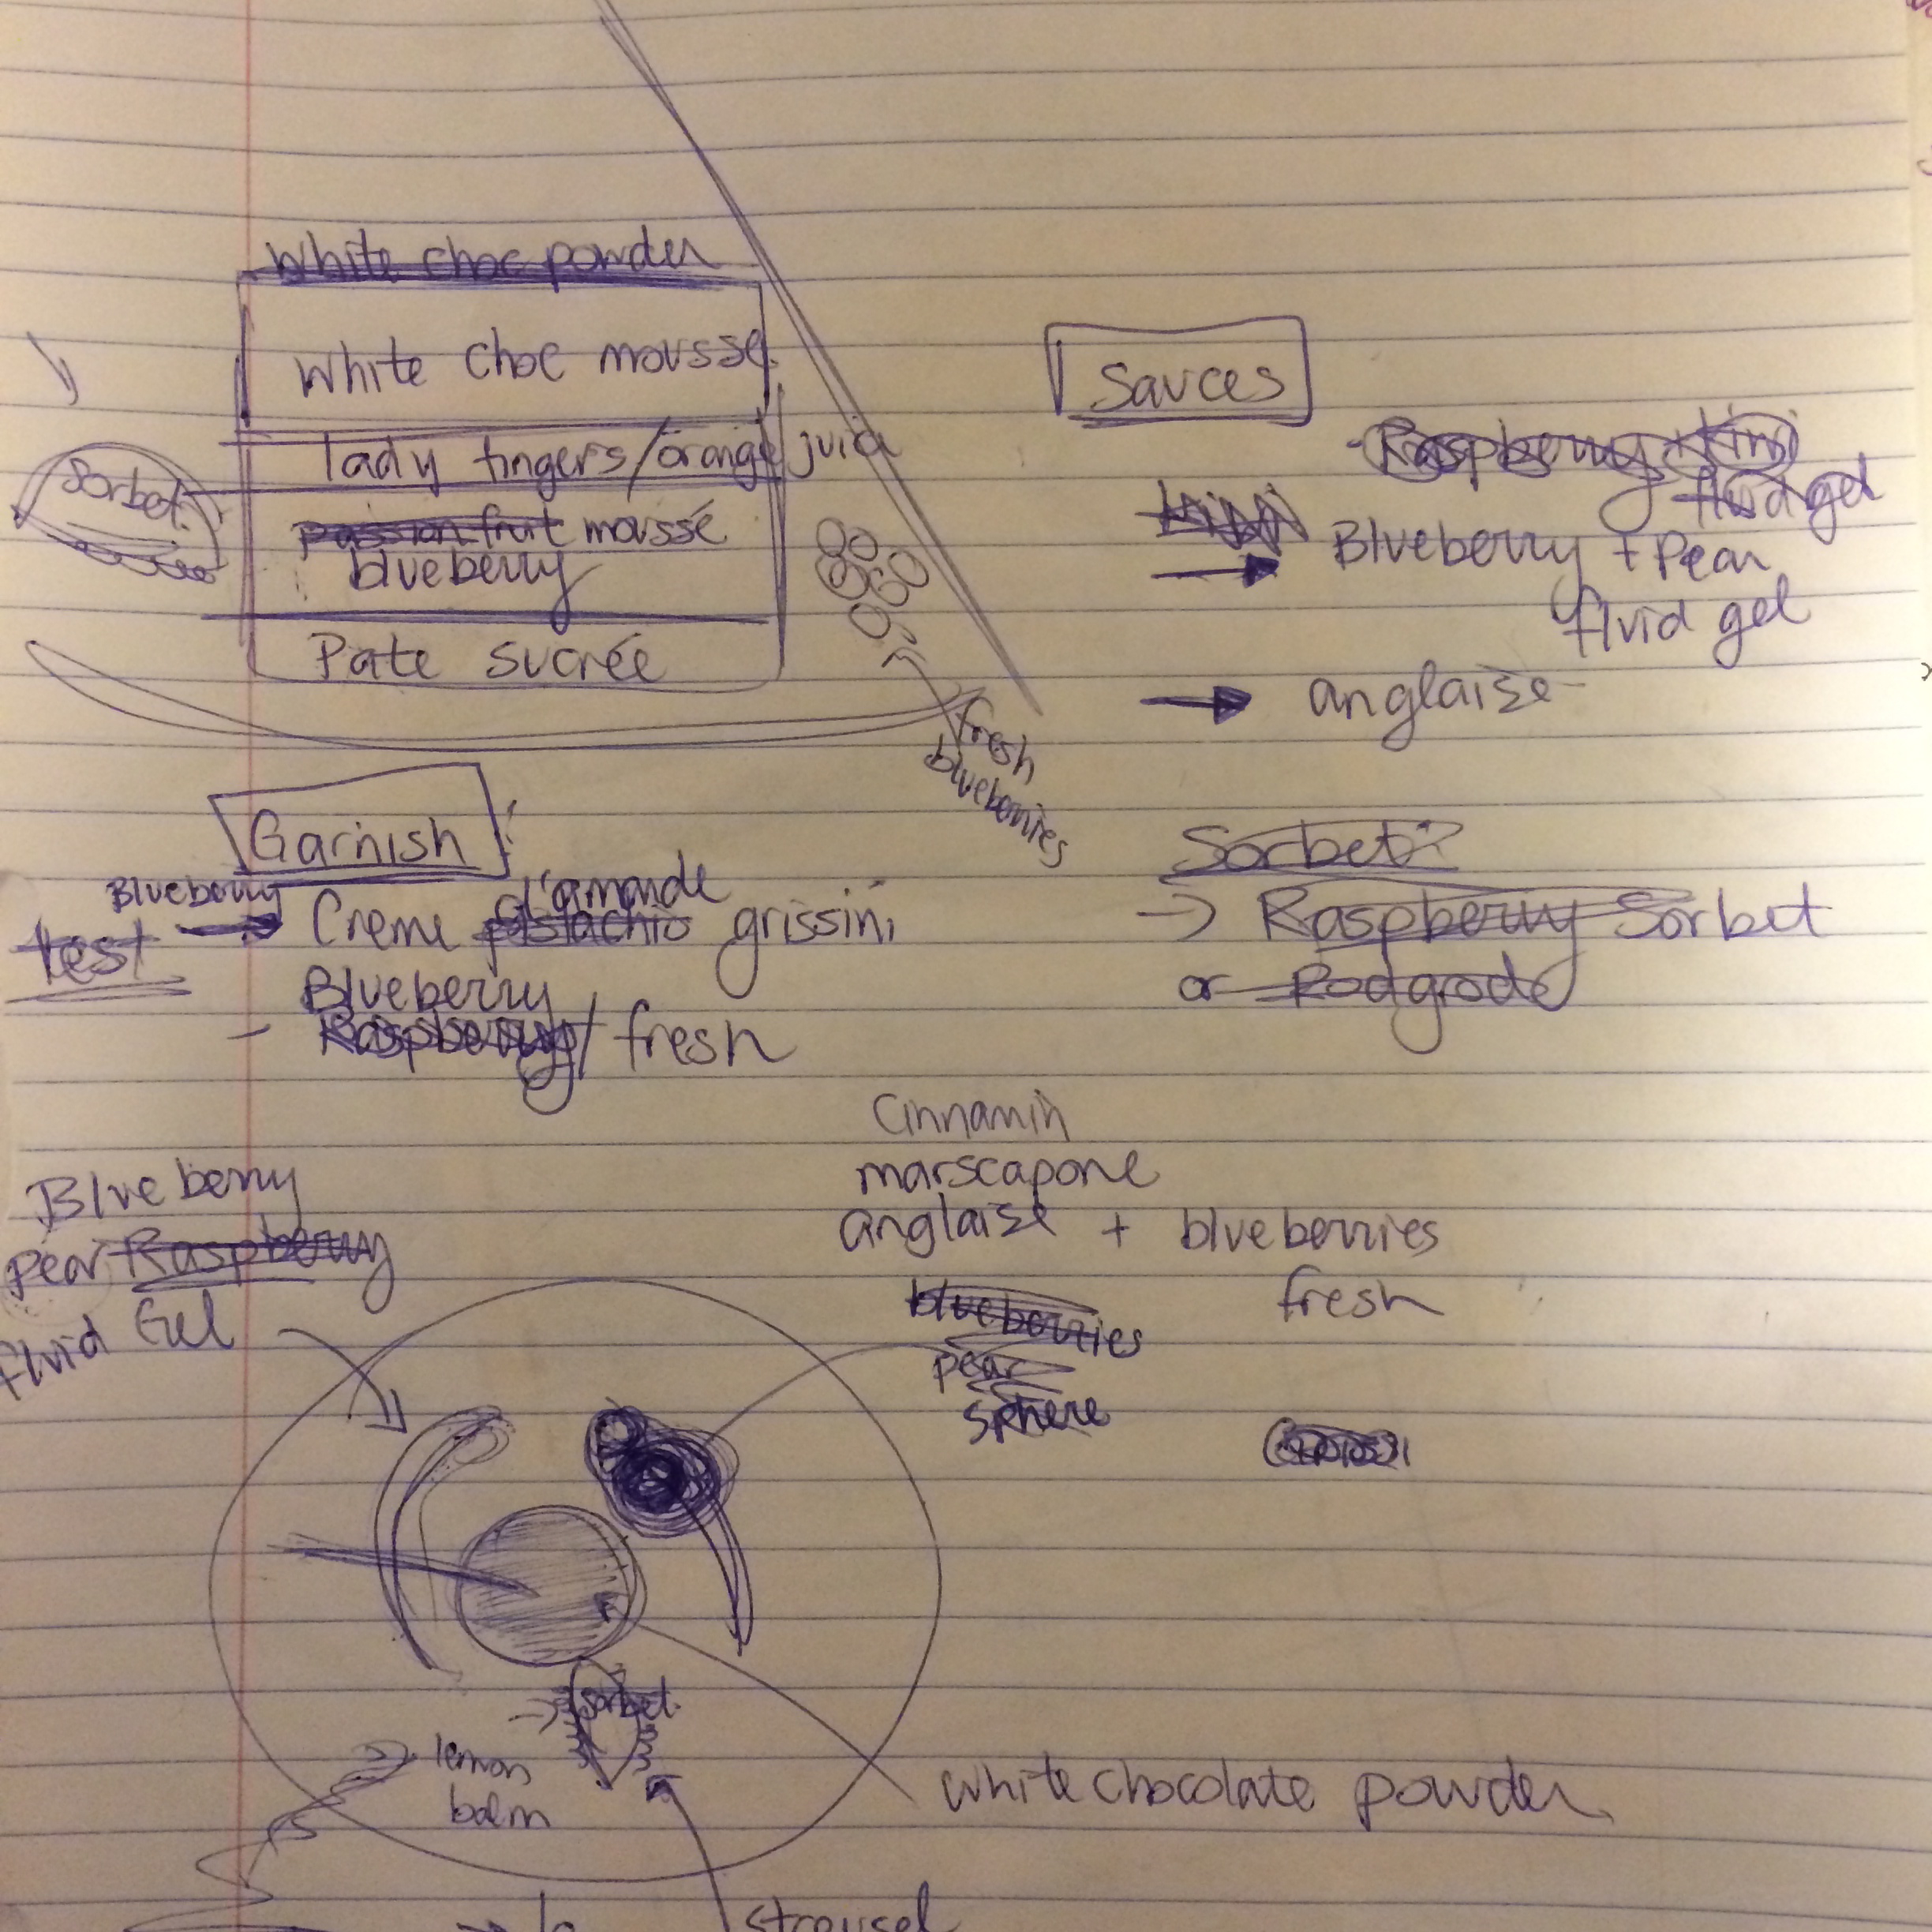 White choc powder
White Choc mousse
lady fingers/orange juice
Sorbet
passion fruit mousse
blueberry
Pate sucrée
fresh
blueberries
Sauces
- Raspberry Kiwi
fluid gel
Blueberry + Pear
fluid gel
anglaise
Garnish
Blueberry
test
d'amande
Creme pistachio grissini
Blueberry
- Raspberry / fresh
Sorbet?
Raspberry Sorbet
or Rodgrode
Cinnamin
marscapone
anglaise + blueberries
fresh
blueberries
pear
sphere
Blueberry
pear Raspberry
fluid Gel
Sorbet
lemon
balm
white chocolate powder
streusel